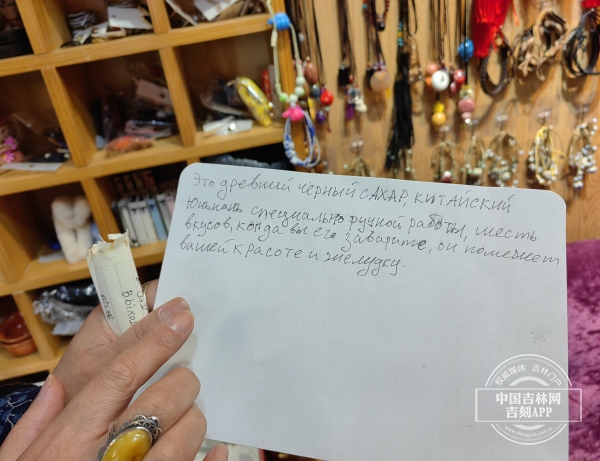 Это древний чёрный САХАР, КИТАЙСКИЙ
Юньнань специально ручной работы, шесть
вкусов, когда вы его заварите, он поможет
вашей красоте и желудку.
权威媒体 吉林门户
中国吉林网
吉刻APP